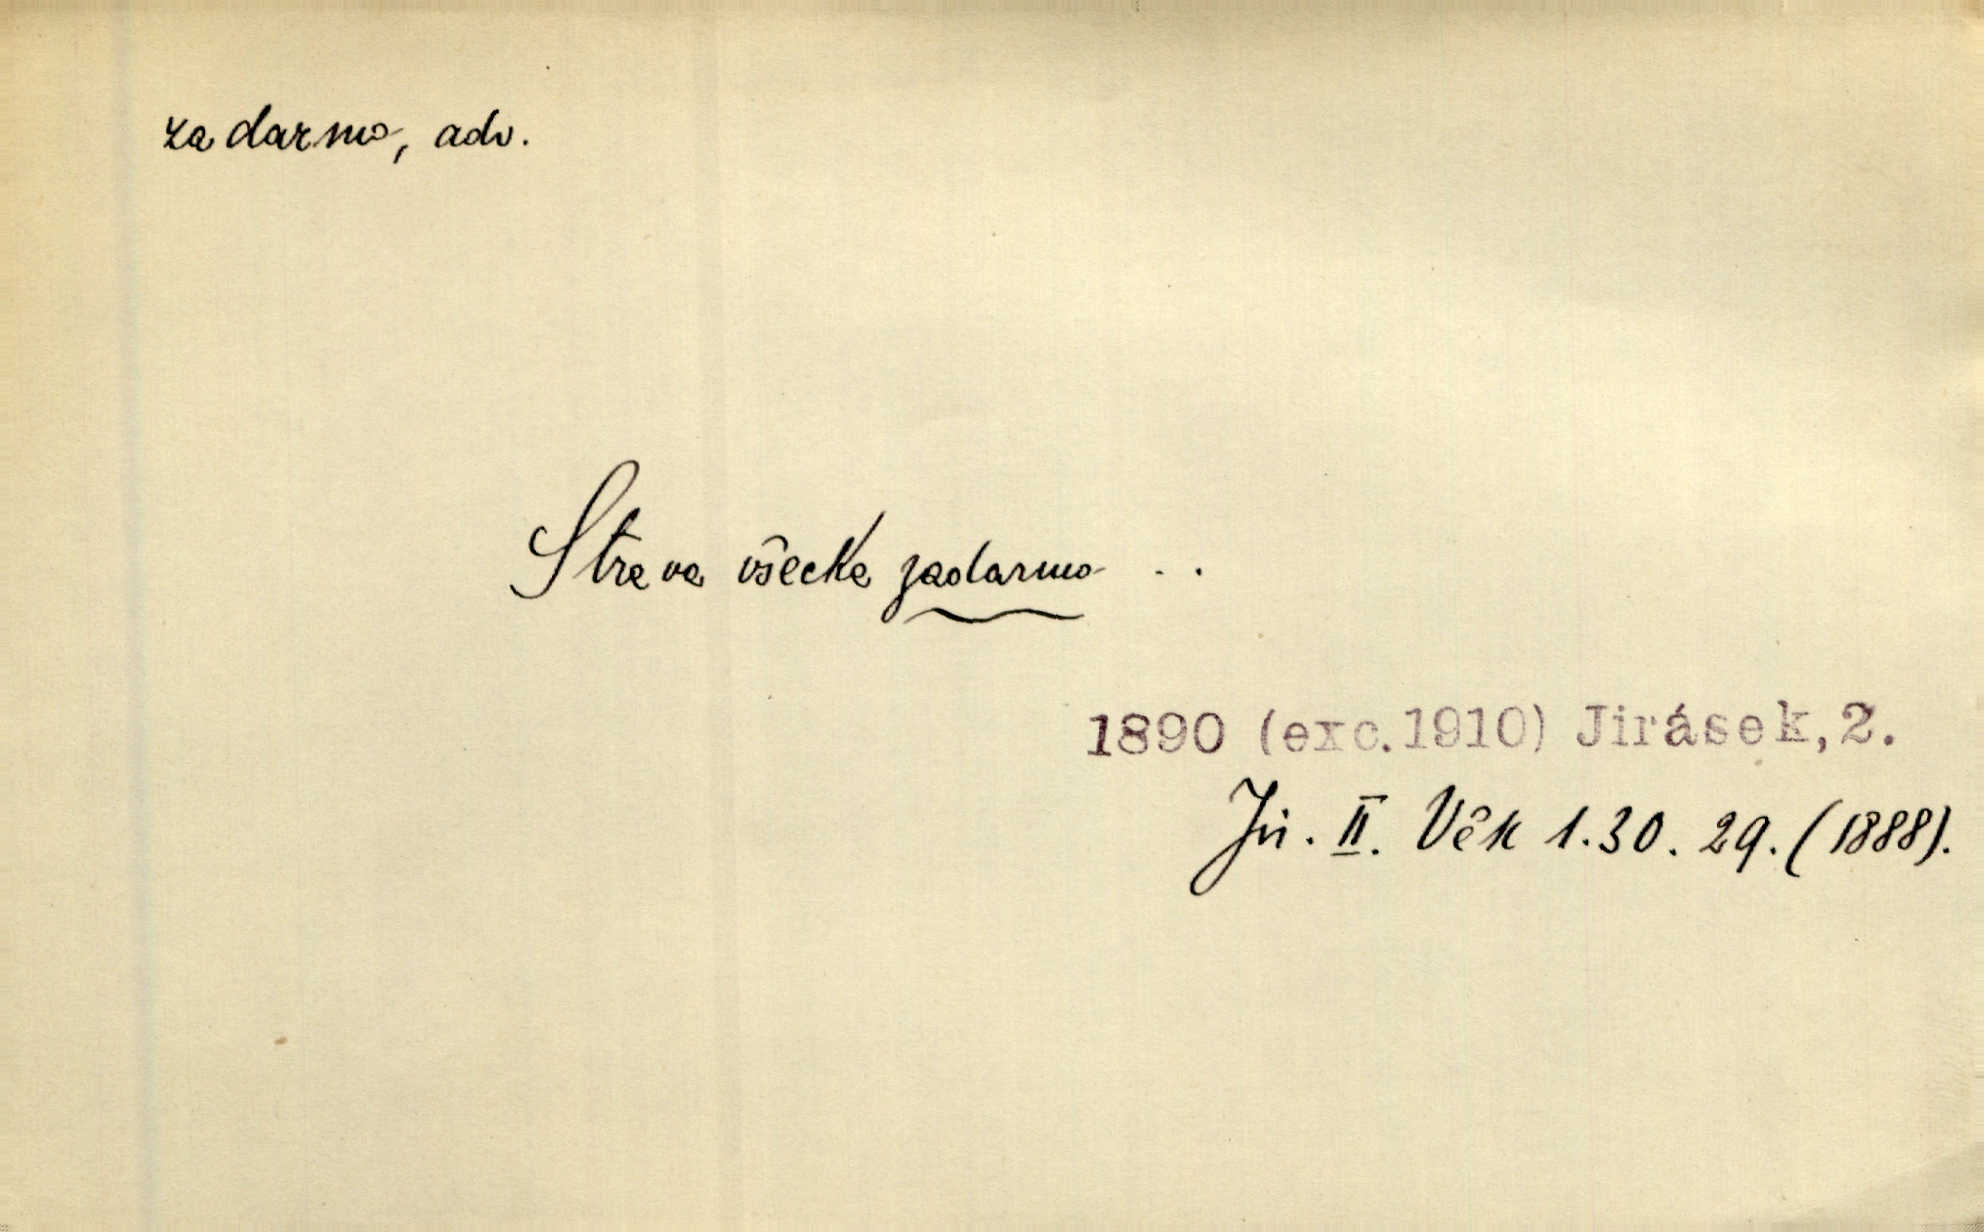 zadarmo, adv.
Strava všecka zadarmo . .
1890 (exc.1910) Jirásek, 2.
Jir. II. Věk 1.30. 29. (1888).